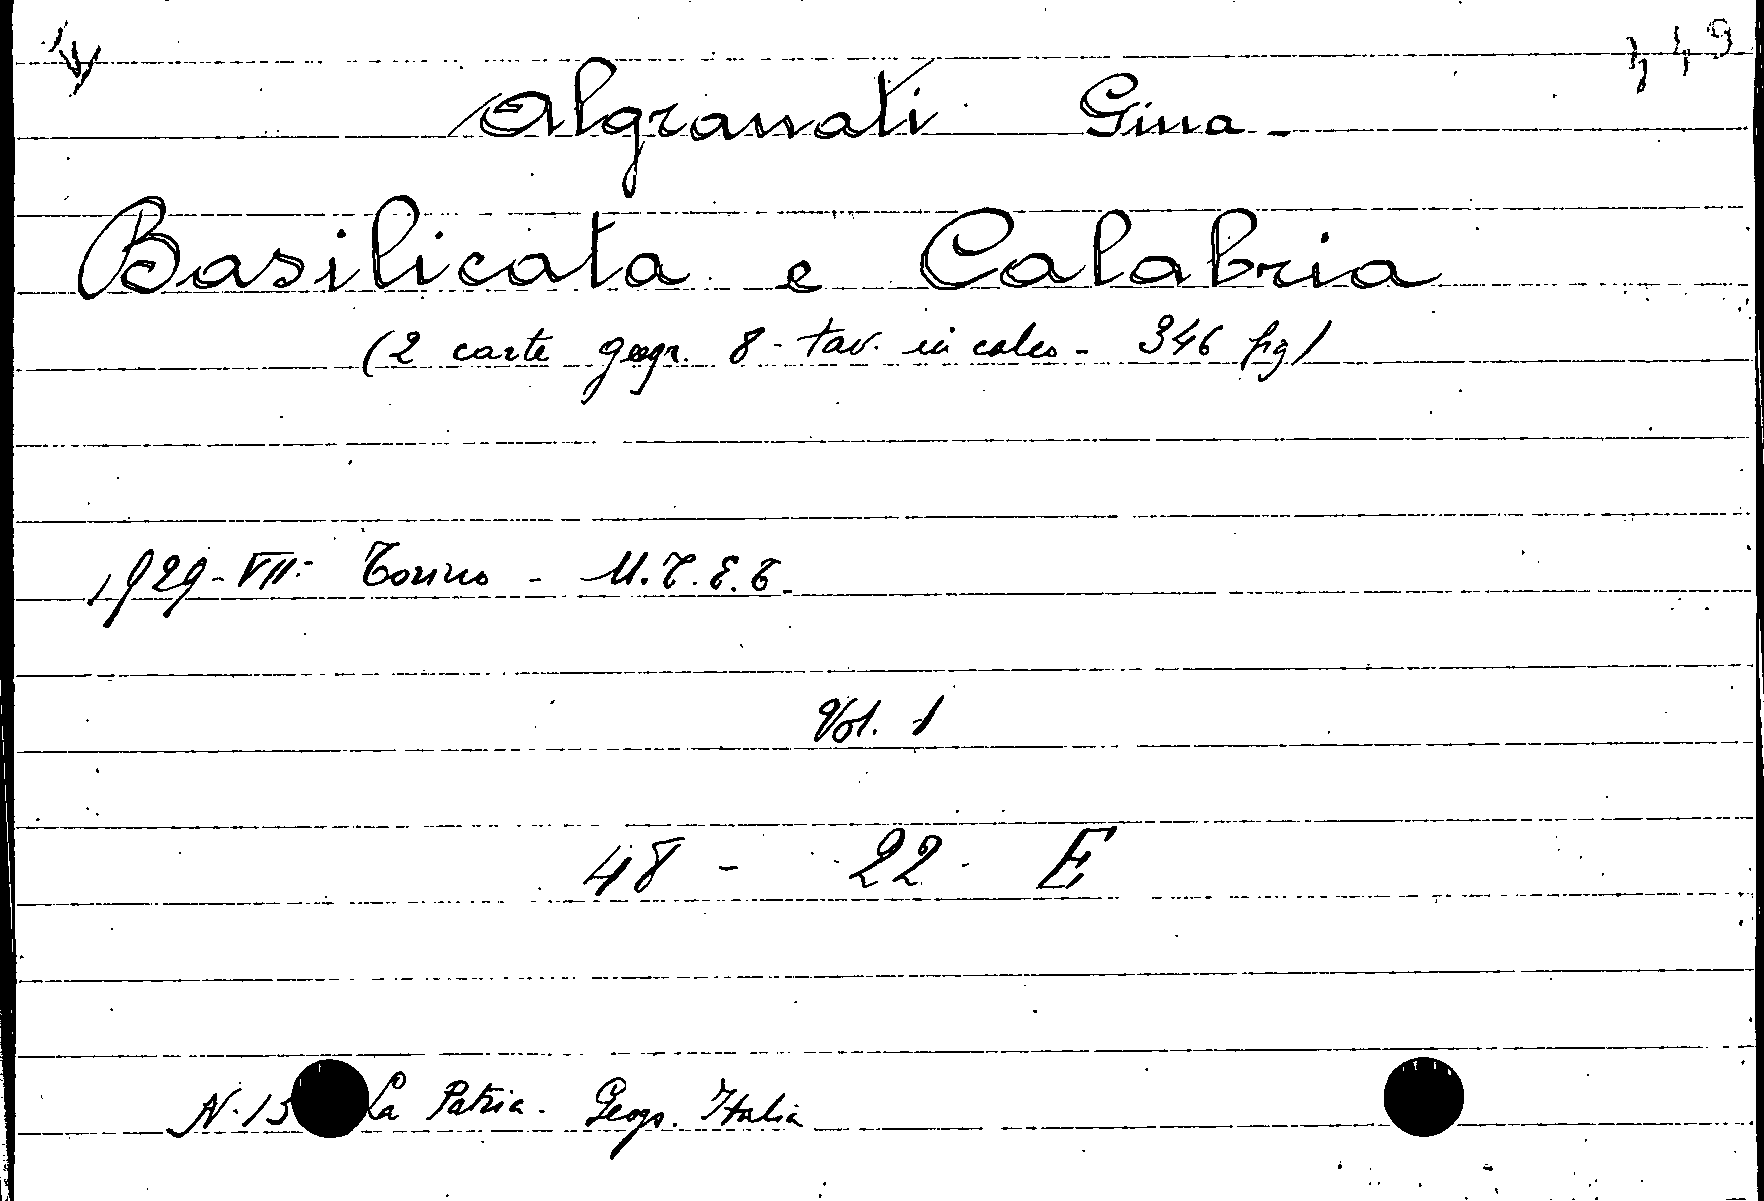 449
Algranati Gina -
Basilicata e Calabria
(2 carte geogr. 8 - tav. in colo - 346 fig)
1929 - VII - Torino - U.T.E.T.
Vol. 1
48 - 22 E
N. 15 La Patria. Geogr. Italia